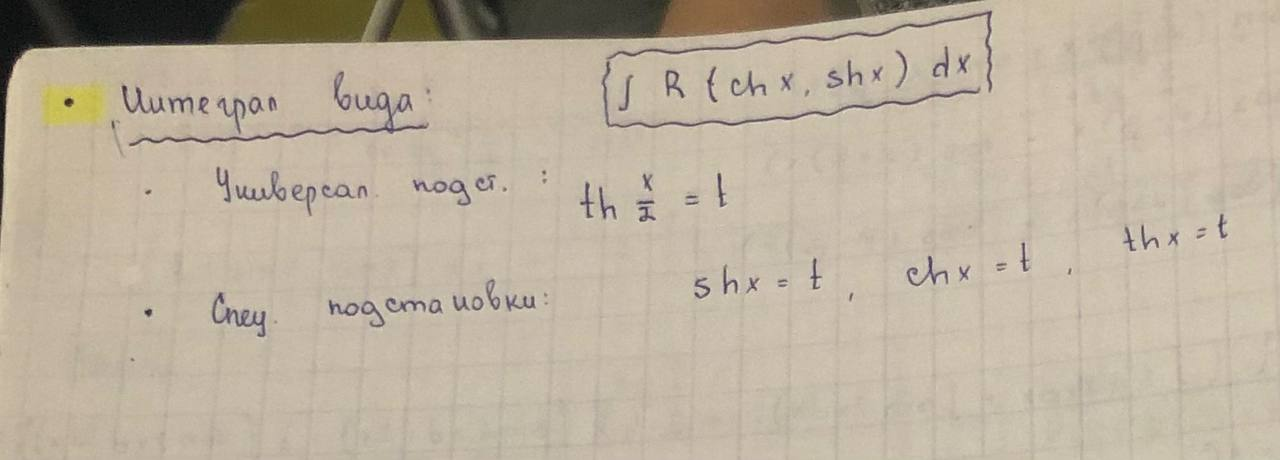 • Интеграл вида: ∫ R (ch x, sh x) dx
· Универсал. подст. : th x/2 = t
• Спец. подстановки: sh x = t, ch x = t, th x = t